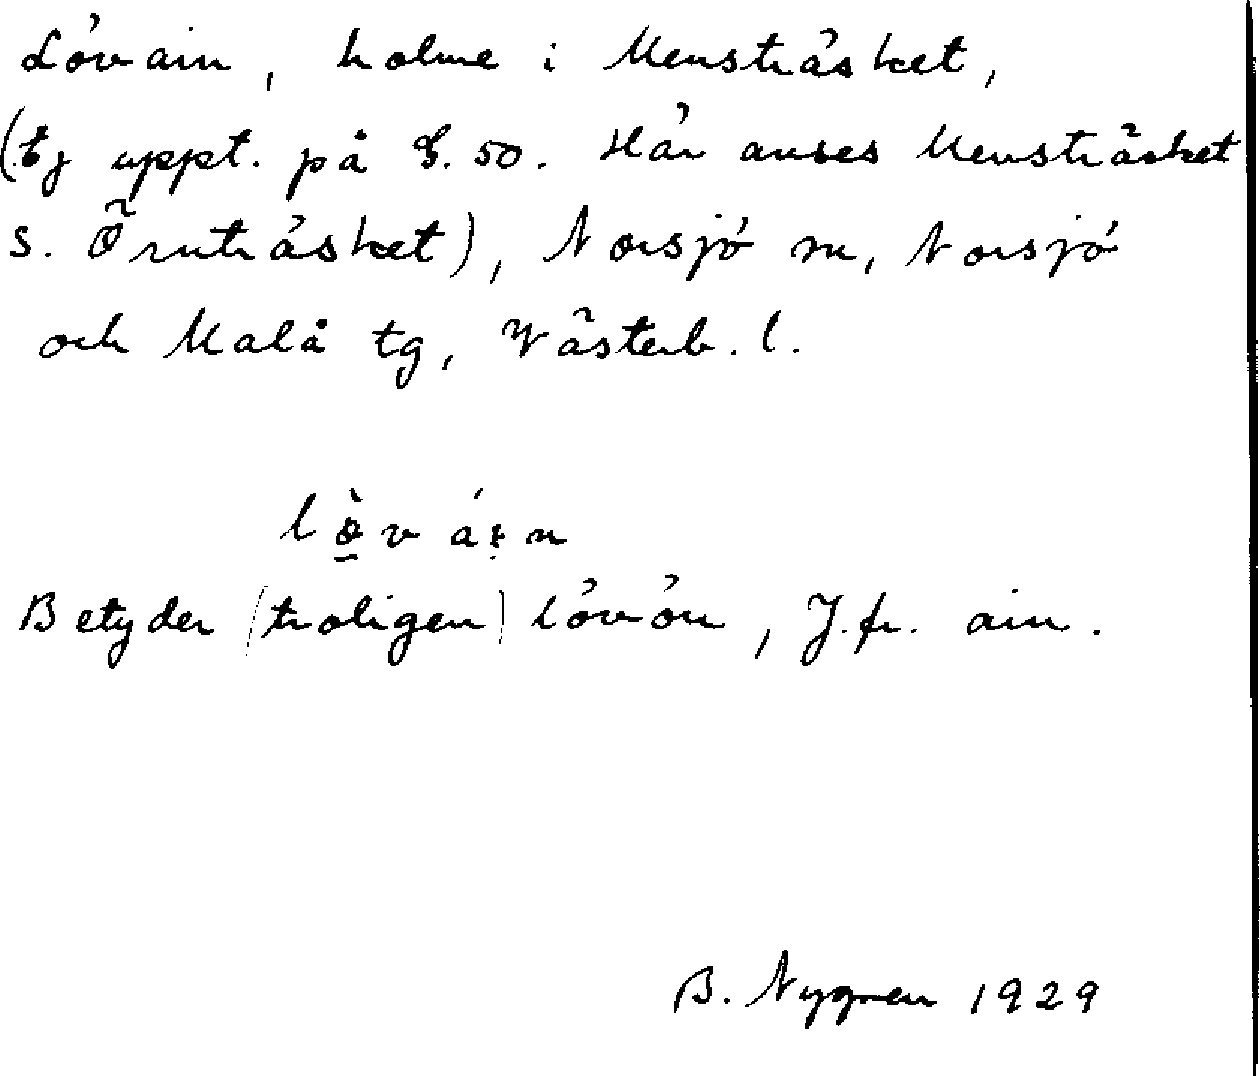 Lövain, holme i Mensträsket,
(Ej uppt. på G. 50. Här anses Mensträsket
s. Örnträsket), Norsjö sn, Norsjö
och Malå tg, Västerb. l.
lö̀v áin
Betyder (troligen) lövön, J.fr. ain.
B. Nygren 1929